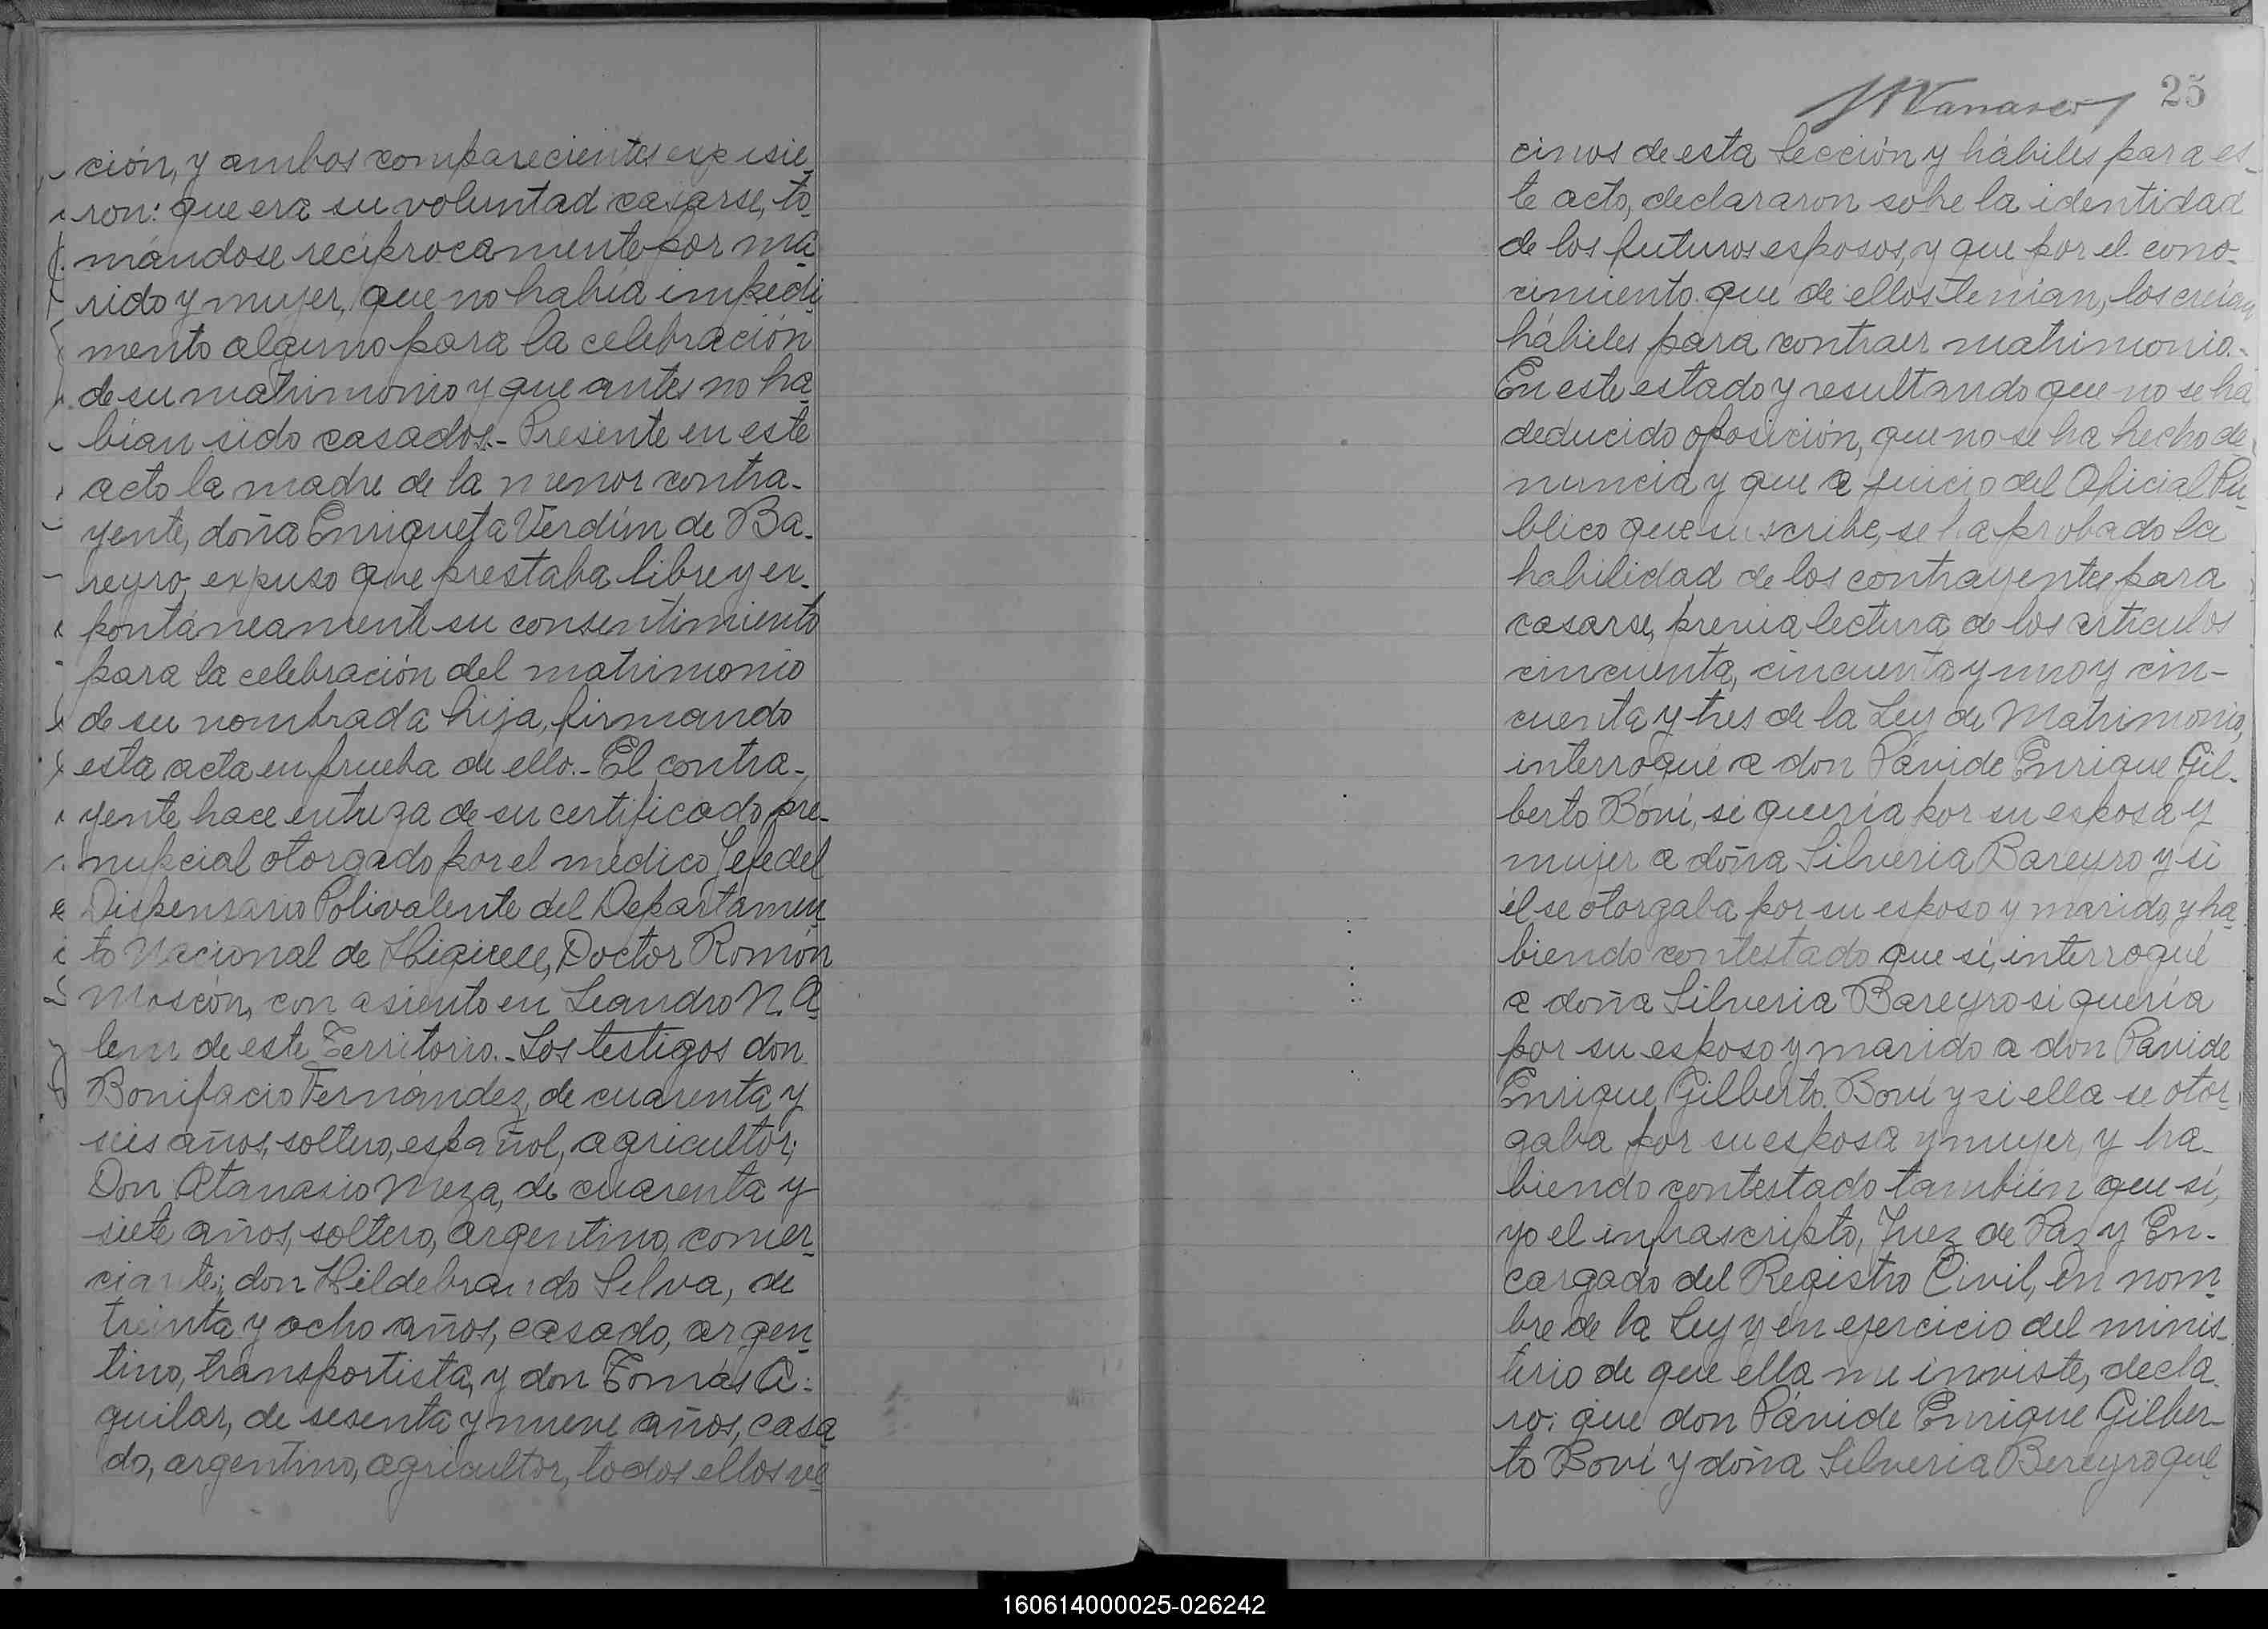 ción, y ambos comparecientes expusie-
ron: que era su voluntad casarse, to-
mándose recíprocamente por ma-
rido y mujer, que no había impedi-
mento alguno para la celebración
de su matrimonio y que antes no ha-
bían sido casados.- Presente en este
acto la madre de la menor contra-
yente, doña Enriqueta Verdún de Ba-
reyro, expuso que prestaba libre y ex-
pontáneamente su consentimiento
para la celebración del matrimonio
de su nombrada hija, firmando
esta acta en prueba de ello.- El contra-
yente hace entrega de su certificado pre-
nupcial otorgado por el médico Jefe del
Dispensario Polivalente del Departamen-
to Nacional de Higiene, Doctor Román
con asiento en Leandro N. A-
lem de este Territorio.- Los testigos don
Bonifacio Fernández, de cuarenta y
seis años, soltero, español, agricultor;
Don Atanasio Meza, de cuarenta y
siete años, soltero, argentino, comer-
ciante; don Hildebrando Silva, de
treinta y ocho años, casado, argen-
tino, transportista, y don Tomás A-
guilar, de sesenta y nueve años, casa-
do, argentino, agricultor, todos ellos ve-
25
cinos de esta Sección y hábiles para es-
te acto, declararon sobre la identidad
de los futuros esposos, y que por el cono-
cimiento que de ellos tenían, los creían
hábiles para contraer matrimonio.-
En este estado y resultando que no se ha
deducido oposición, que no se ha hecho de-
nuncia y que a juicio del Oficial Pú-
blico que suscribe, se ha probado la
habilidad de los contrayentes para
casarse, previa lectura de los artículos
cincuenta, cincuenta y uno y cin-
cuenta y tres de la Ley de Matrimonio,
interrogué a don Pávide Enrique Gil-
berto Bóvi, si quería por su esposa y
mujer a doña Silveria Bareyro y si
él se otorgaba por su esposo y marido, y ha-
biendo contestado que sí, interrogué
a doña Silveria Bareyro si quería
por su esposo y marido a don Pávide
Enrique Gilberto Boví y si ella se otor-
gaba por su esposa y mujer, y ha-
biendo contestado también que sí,
yo el infrascripto, Juez de Paz y En-
cargado del Registro Civil, en nom-
bre de la Ley y en ejercicio del minis-
terio de que ella me inviste, decla-
ro: que don Pávide Enrique Gilber-
to Boví y doña Silveria Bereyro que
160614000025-026242